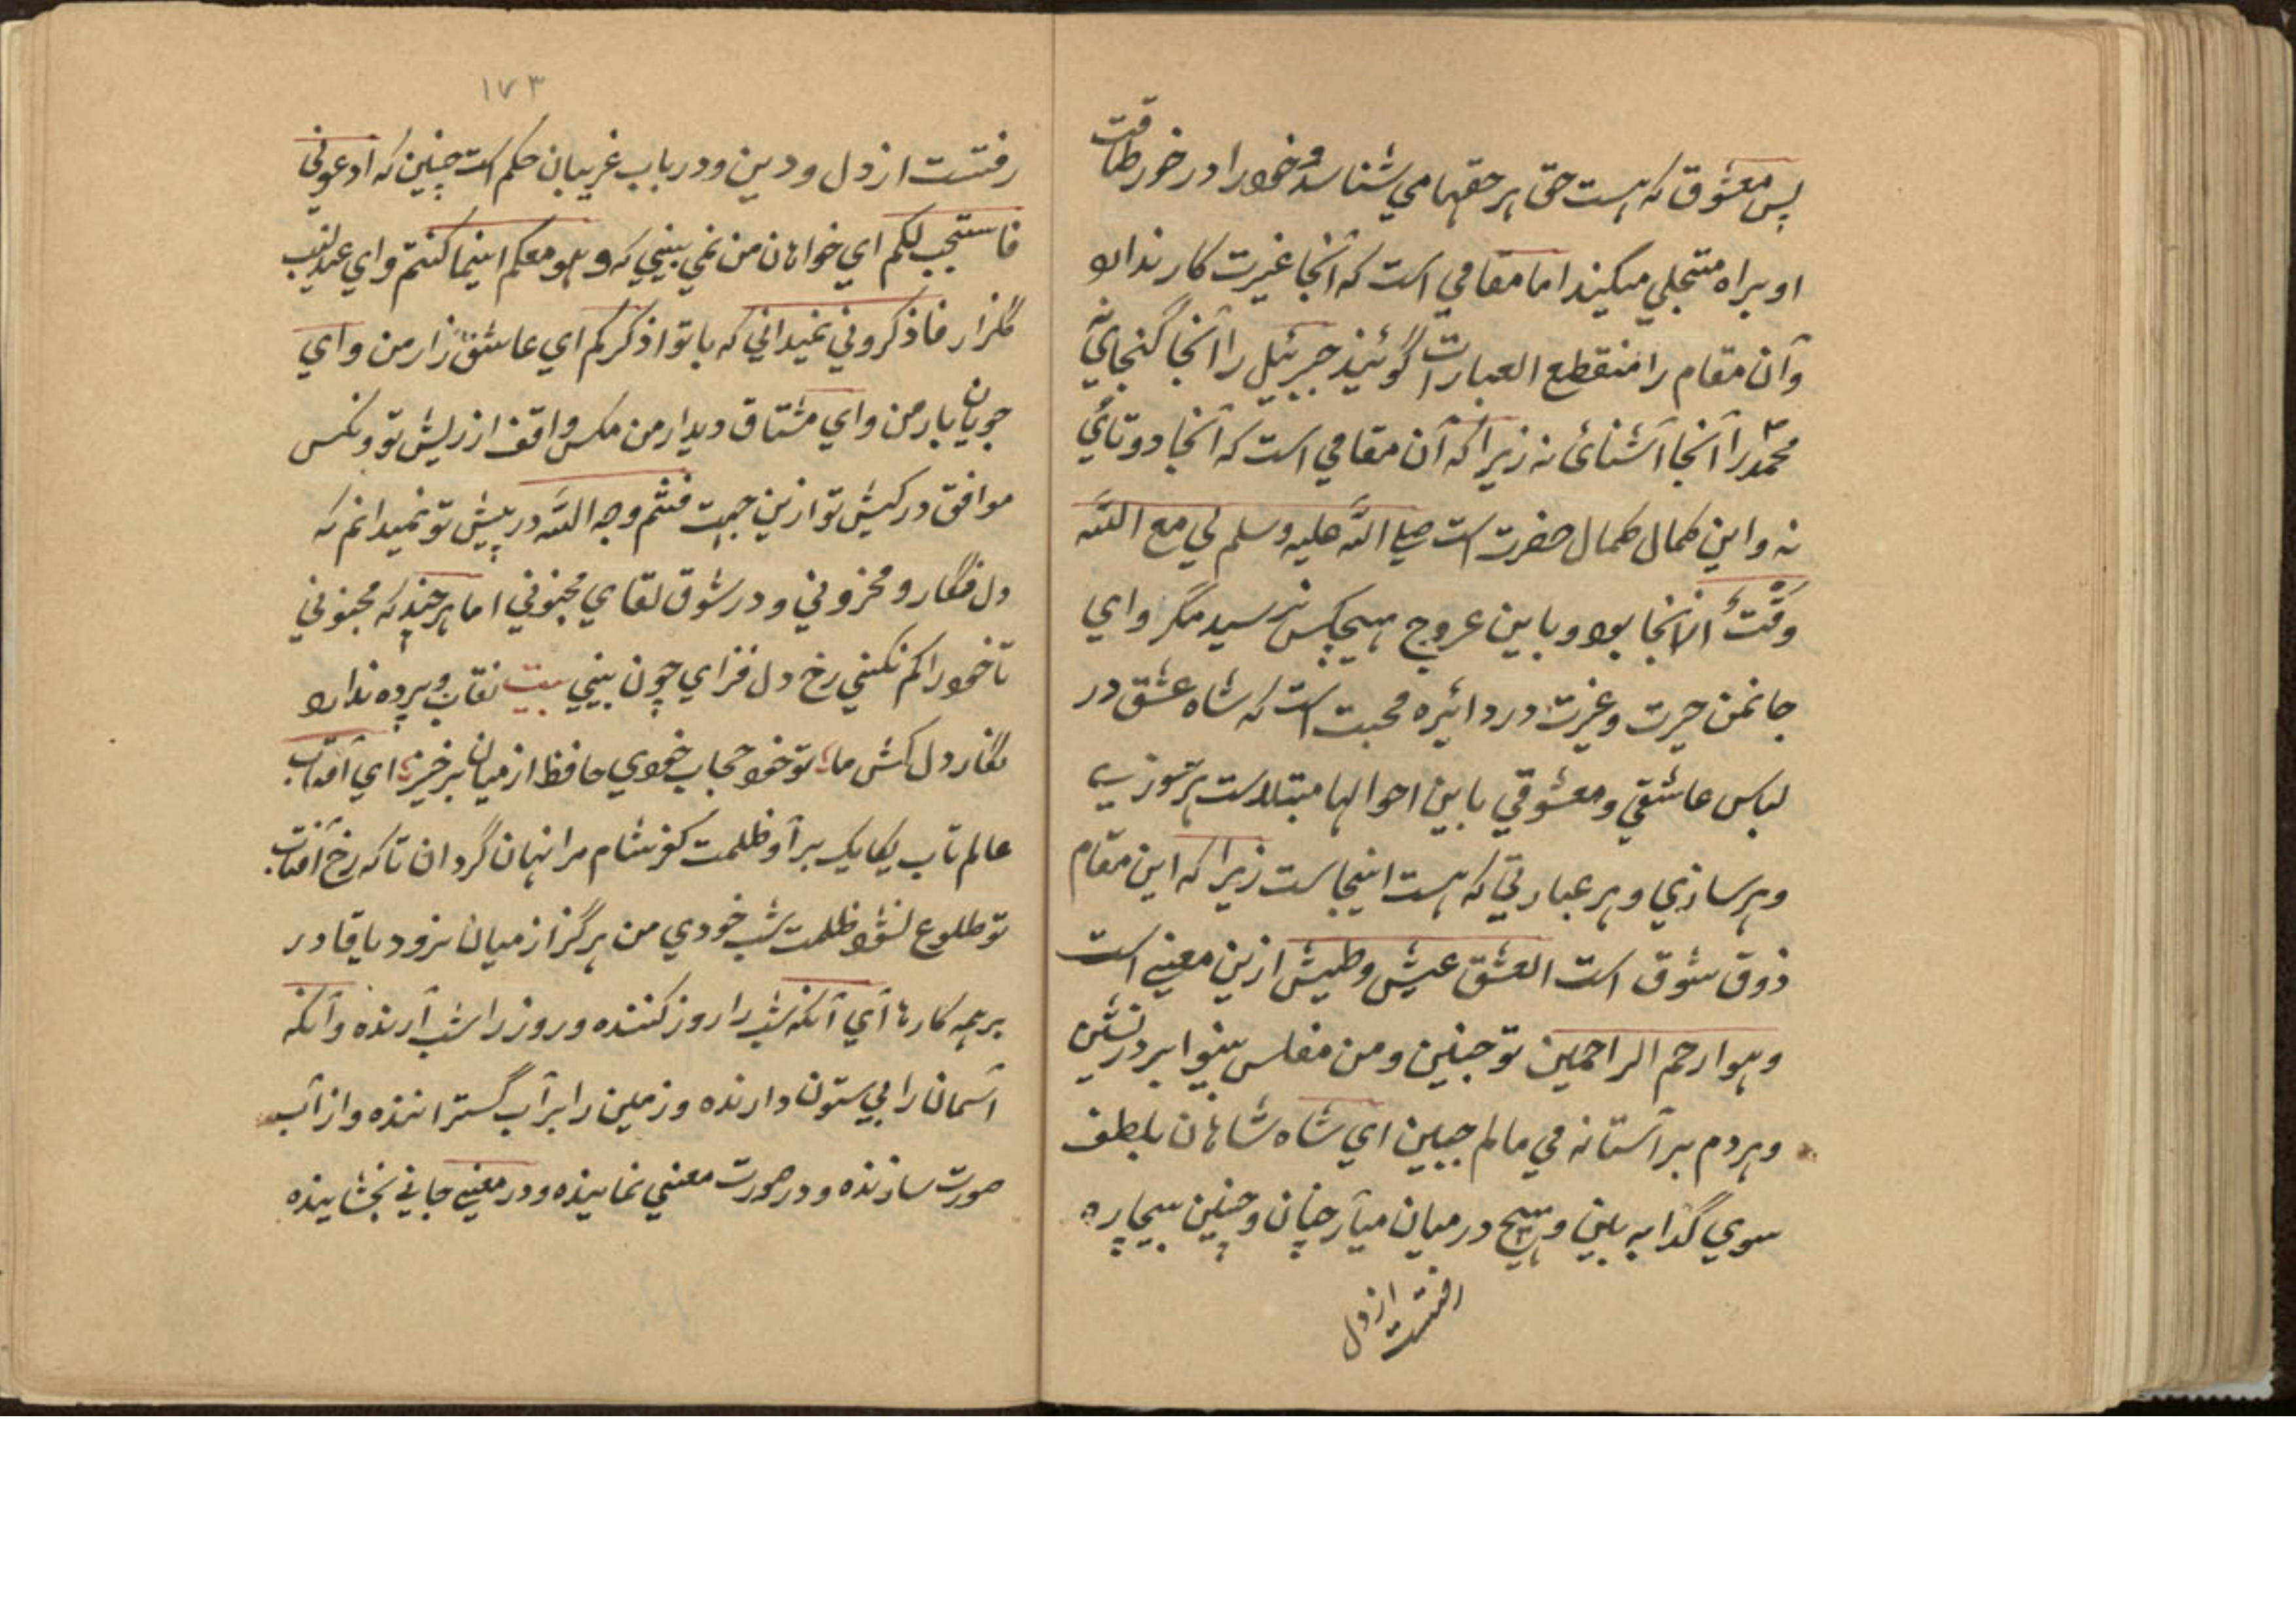 پس معشوق که هست حق هر حقها می شناسد و خود را در خور طاقت
او براه متجلی میکند اما مقامی است که آنجا غیرت کار ندارد
وآن مقام را منقطع العبارات گوئیند جبرئیل را آنجا گنجایٔ نه
محمّد را آنجا آشنائ نه زیرا که آن مقامی است که آنجا دوتایٔ
نه و این کمال کمال حضرت است صلی الله علیه وسلم لی مع الله
وقتٌ آنجا بود و باین عروج هیچکس نرسید مگر وای
جانمن حیرت و غیرت در دائیره محبت است که شاه عشق در
لباس عاشقی و معشوقی باین احوالها مبتلاست هر سوزی
و هر سازی و هر عبارتی که هست اینجاست زیرا که این مقام
ذوق شوق است العشق عیش و طیش ازین معنی است
وهو ارحم الراحمین تو چنین و من مفلس بینوا بر در نشین
و هردم بر آستانه می مالم جبین ای شاه شاهان بلطف
سوی گدا به بین و هیچ در میان میآر چنان و چنین بیچاره
رفتست از دل
۱۷۳
رفتست از دل و دین و در باب غریبان حکم است چنین که ادعونی
فاستجب لکم ای خواهان من نمی بینی که و هو معکم اینما کنتم و ای عندلیب
گلزار فاذکرونی نمیدانی که باتو اذکرکم ای عاشق زار من و ای
جویان یار من و ای مشتاق دیدار من مکس واقف از ریش تو و نکس
موافق در کیش تو ازین جهت فثم وجه الله در پیش تو نمیدانم که
دل فگار و محزونی و در شوق لقای مجنونی اما هر چند که مجنونی
تا خود را کم نکنی رخ دل فزای چون بینی بیت نقاب و پرده ندارد
نگار دل کش ما تو خود حجاب خودی حافظ از میان برخیز ای آفتاب
عالم تاب یکایک برآ و ظلمت کفر شام مرا نهان گردان تا که رخ آفتاب
تو طلوع نشود ظلمت شب خودی من هرگز از میان نرود یا قادر
بر همه کارها آی آنکه شب را روز کننده و روز را شب آرنده و آنکه
آسمان را بی ستون دارنده و زمین را بر آب گستراننده و از آب
صورت سازنده و در صورت معنی نماینده و در معنی جانی بخشاینده